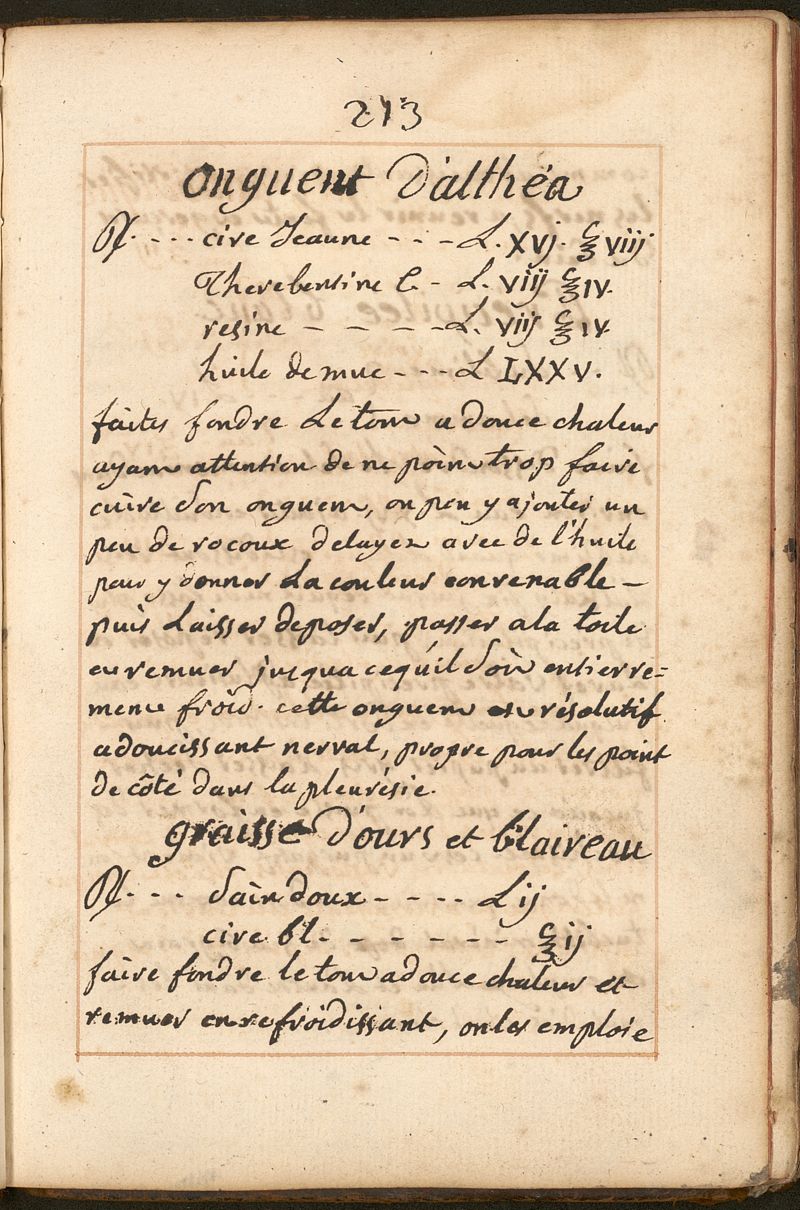 213
onguent D'althéa
℞. - - - cire Jeaune - - - L. xvj. ℥ viij
Therebentine C. - L. viij ℥ iv.
resine - - - - L. viij ℥ iv.
huile de muc - - - L LXXV.
faites fondre Le tout a douce chaleur
ayant attention de ne point trop faire
cuire son onguent, on peu y ajouter un
peu de rocoux delayez avec de l'huile
pour y donner La couleur convenable -
puis Laisser deposer, passer a la toile
et remuer jusqua cequ'il soit entierre=
ment froid. cette onguent est résolutif
adoucissant nerval, propre pour les point
de côté dans la pleurésie.
graisse D'ours et blaireau
℞. - - - sain doux - - - - L ij
cire bl. - - - - - - ℥ ij
faire fondre le tout a douce chaleur et
remuer en refroidissant, on les emploie